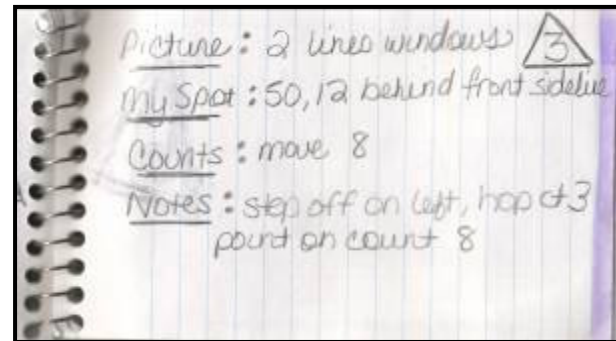 Picture: 2 lines windows 3
My Spot: 50, 12 behind front sideline
Counts: move 8
Notes: step off on left, hop ct 3
point on count 8